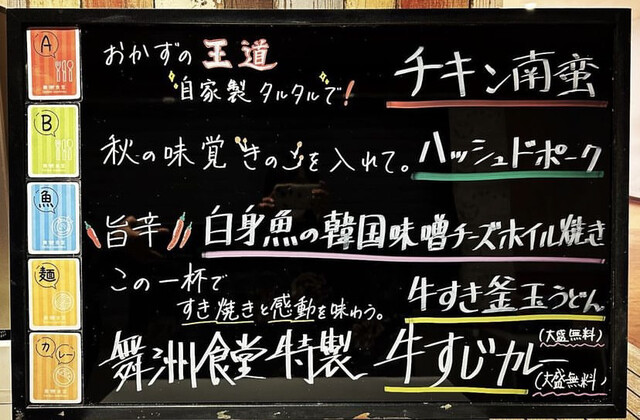 A
おかずの王道
自家製タルタルで!
チキン南蛮
B
秋の味覚きのこを入れて。
ハッシュドポーク
魚
旨辛
白身魚の韓国味噌チーズホイル焼き
麺
この一杯で
すき焼きと感動を味わう。
牛すき釜玉うどん
(大盛無料)
カレー
舞洲食堂特製 牛すじカレー
(大盛無料)